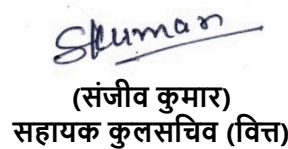 Skuman
(संजीव कुमार)
सहायक कुलसचिव (वित्त)